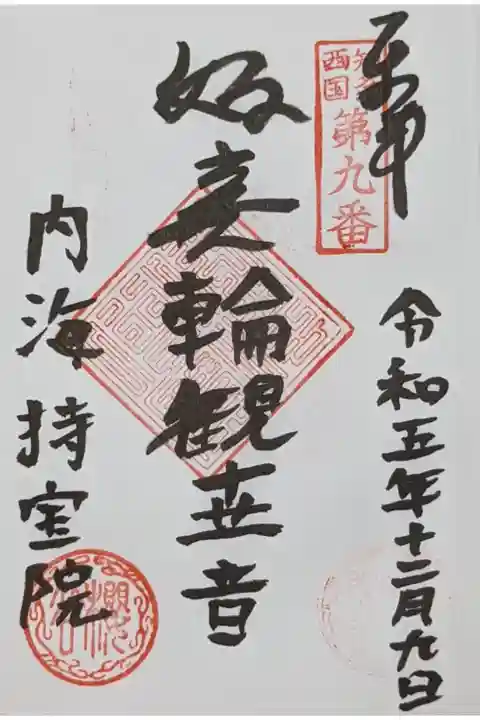 奉拝
知多
西国
第九番
令和五年十二月九日
如意輪観世音
内海 持宝院